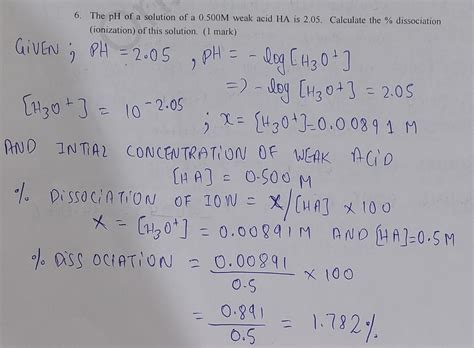 6. The pH of a solution of a 0.500M weak acid HA is 2.05. Calculate the % dissociation
(ionization) of this solution. (1 mark)
GIVEN ; PH = 2.05 , PH = - log [H3O+]
=> - log [H3O+] = 2.05
[H3O+] = 10-2.05 ; x = [H3O+] = 0.00891 M
AND INTIAL CONCENTRATION OF WEAK ACID
[HA] = 0.500 M
% DISSOCIATION OF ION = X/[HA] × 100
X = [H3O+] = 0.00891M AND [HA]=0.5M
% DISSOCIATION = 0.00891/0.5 × 100
= 0.891/0.5 = 1.782%